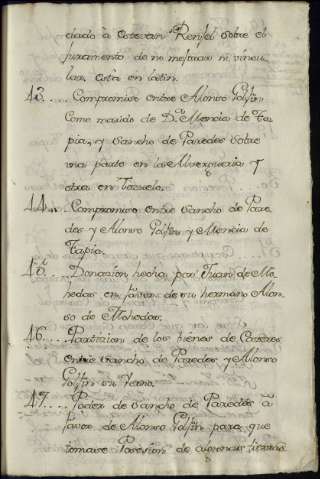 ciado à Estevan Rensel sobre el
juramento de no mejorar ni vincu
lar, està en latin.
43.... Compromiso entre Alonso Golfin
Como marido de D.ª Mencia de Ta
pia, y Sancho de Paredes sobre
una parte en la Alverguería y
otra en
44... Compromiso entre Sancho de Pare
des y Alonso Golfin y Mencia de
Tapia.
45.... Donacion hecha por Juan de Mo
hedas en favor de su hermano Alon
so de Mohedas.
46.... Particion de los vienes de Caseros
entre Sancho de Paredes y Alonso
Golfin su Yerno.
47.... Poder de Sancho de Paredes à
favor de Alonso Golfin para que
tomase Posesion de algunas tierras